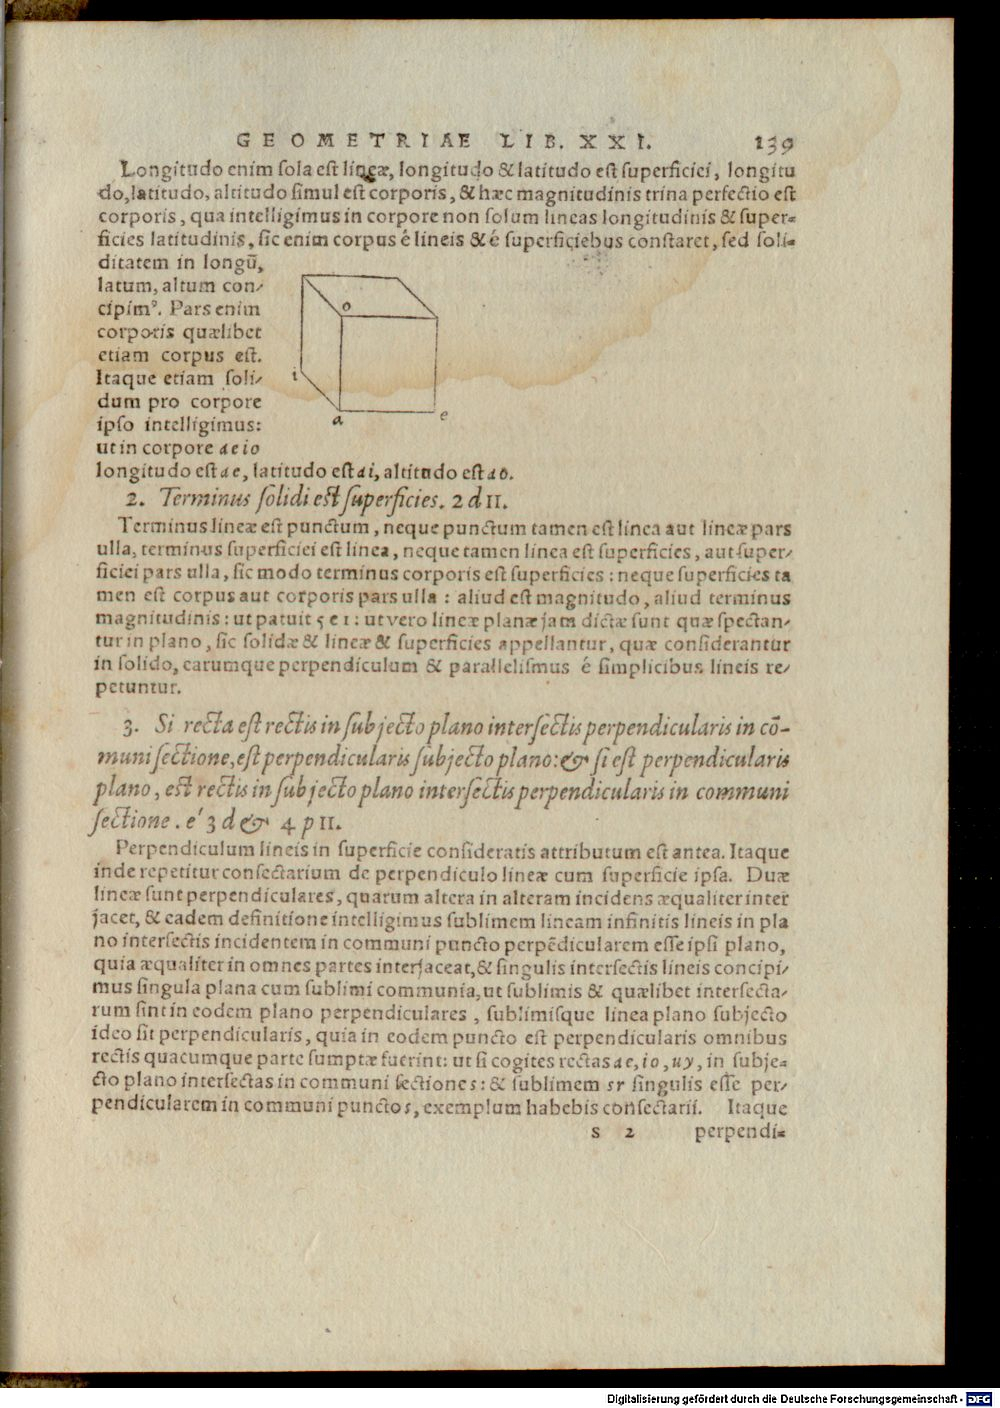 GEOMETRIAE LIB. XXI. 139
Longitudo enim sola est lineæ, longitudo & latitudo est superficiei, longitu
do, latitudo, altitudo simul est corporis, & hæc magnitudinis trina perfectio est
corporis, qua intelligimus in corpore non solum lineas longitudinis & super-
ficies latitudinis, sic enim corpus é lineis & é superficiebus constaret, sed soli-
ditatem in longũ,
latum, altum con-
cipimꝰ. Pars enim
corporis quælibet
etiam corpus est.
Itaque etiam soli-
dum pro corpore
ipso intelligimus:
ut in corpore aeio
o
i
a
e
longitudo est ae, latitudo est ai, altitudo est ao.
2. Terminus solidi est superficies. 2 d 11.
Terminus lineæ est punctum, neque punctum tamen est linea aut lineæ pars
ulla, terminus superficiei est linea, neque tamen linea est superficies, aut super-
ficiei pars ulla, sic modo terminus corporis est superficies: neque superficies ta
men est corpus aut corporis pars ulla: aliud est magnitudo, aliud terminus
magnitudinis: ut patuit 5 e 1: ut vero lineæ planæ jam dictæ sunt quæ spectan-
tur in plano, sic solidæ & lineæ & superficies appellantur, quæ considerantur
in solido, earumque perpendiculum & parallelismus é simplicibus lineis re-
petuntur.
3. Si recta est rectis in subjecto plano intersectis perpendicularis in cõ-
muni sectione, est perpendicularis subjecto plano: & si est perpendicularis
plano, est rectis in subjecto plano intersectis perpendicularis in communi
sectione. e' 3 d & 4 p 11.
Perpendiculum lineis in superficie consideratis attributum est antea. Itaque
inde repetitur consectarium de perpendiculo lineæ cum superficie ipsa. Duæ
lineæ sunt perpendiculares, quarum altera in alteram incidens æqualiter inter
jacet, & eadem definitione intelligimus sublimem lineam infinitis lineis in pla
no intersectis incidentem in communi puncto perpẽdicularem esse ipsi plano,
quia æqualiter in omnes partes interjaceat, & singulis intersectis lineis concipi-
mus singula plana cum sublimi communia, ut sublimis & quælibet intersecta-
rum sint in eodem plano perpendiculares, sublimisque linea plano subjecto
ideo sit perpendicularis, quia in eodem puncto est perpendicularis omnibus
rectis quacumque parte sumptæ fuerint: ut si cogites rectas ae, io, uy, in subje-
cto plano intersectas in communi sectione s: & sublimem sr singulis esse per-
pendicularem in communi puncto s, exemplum habebis consectarii. Itaque
S 2 perpendi-
Digitalisierung gefördert durch die Deutsche Forschungsgemeinschaft - DFG